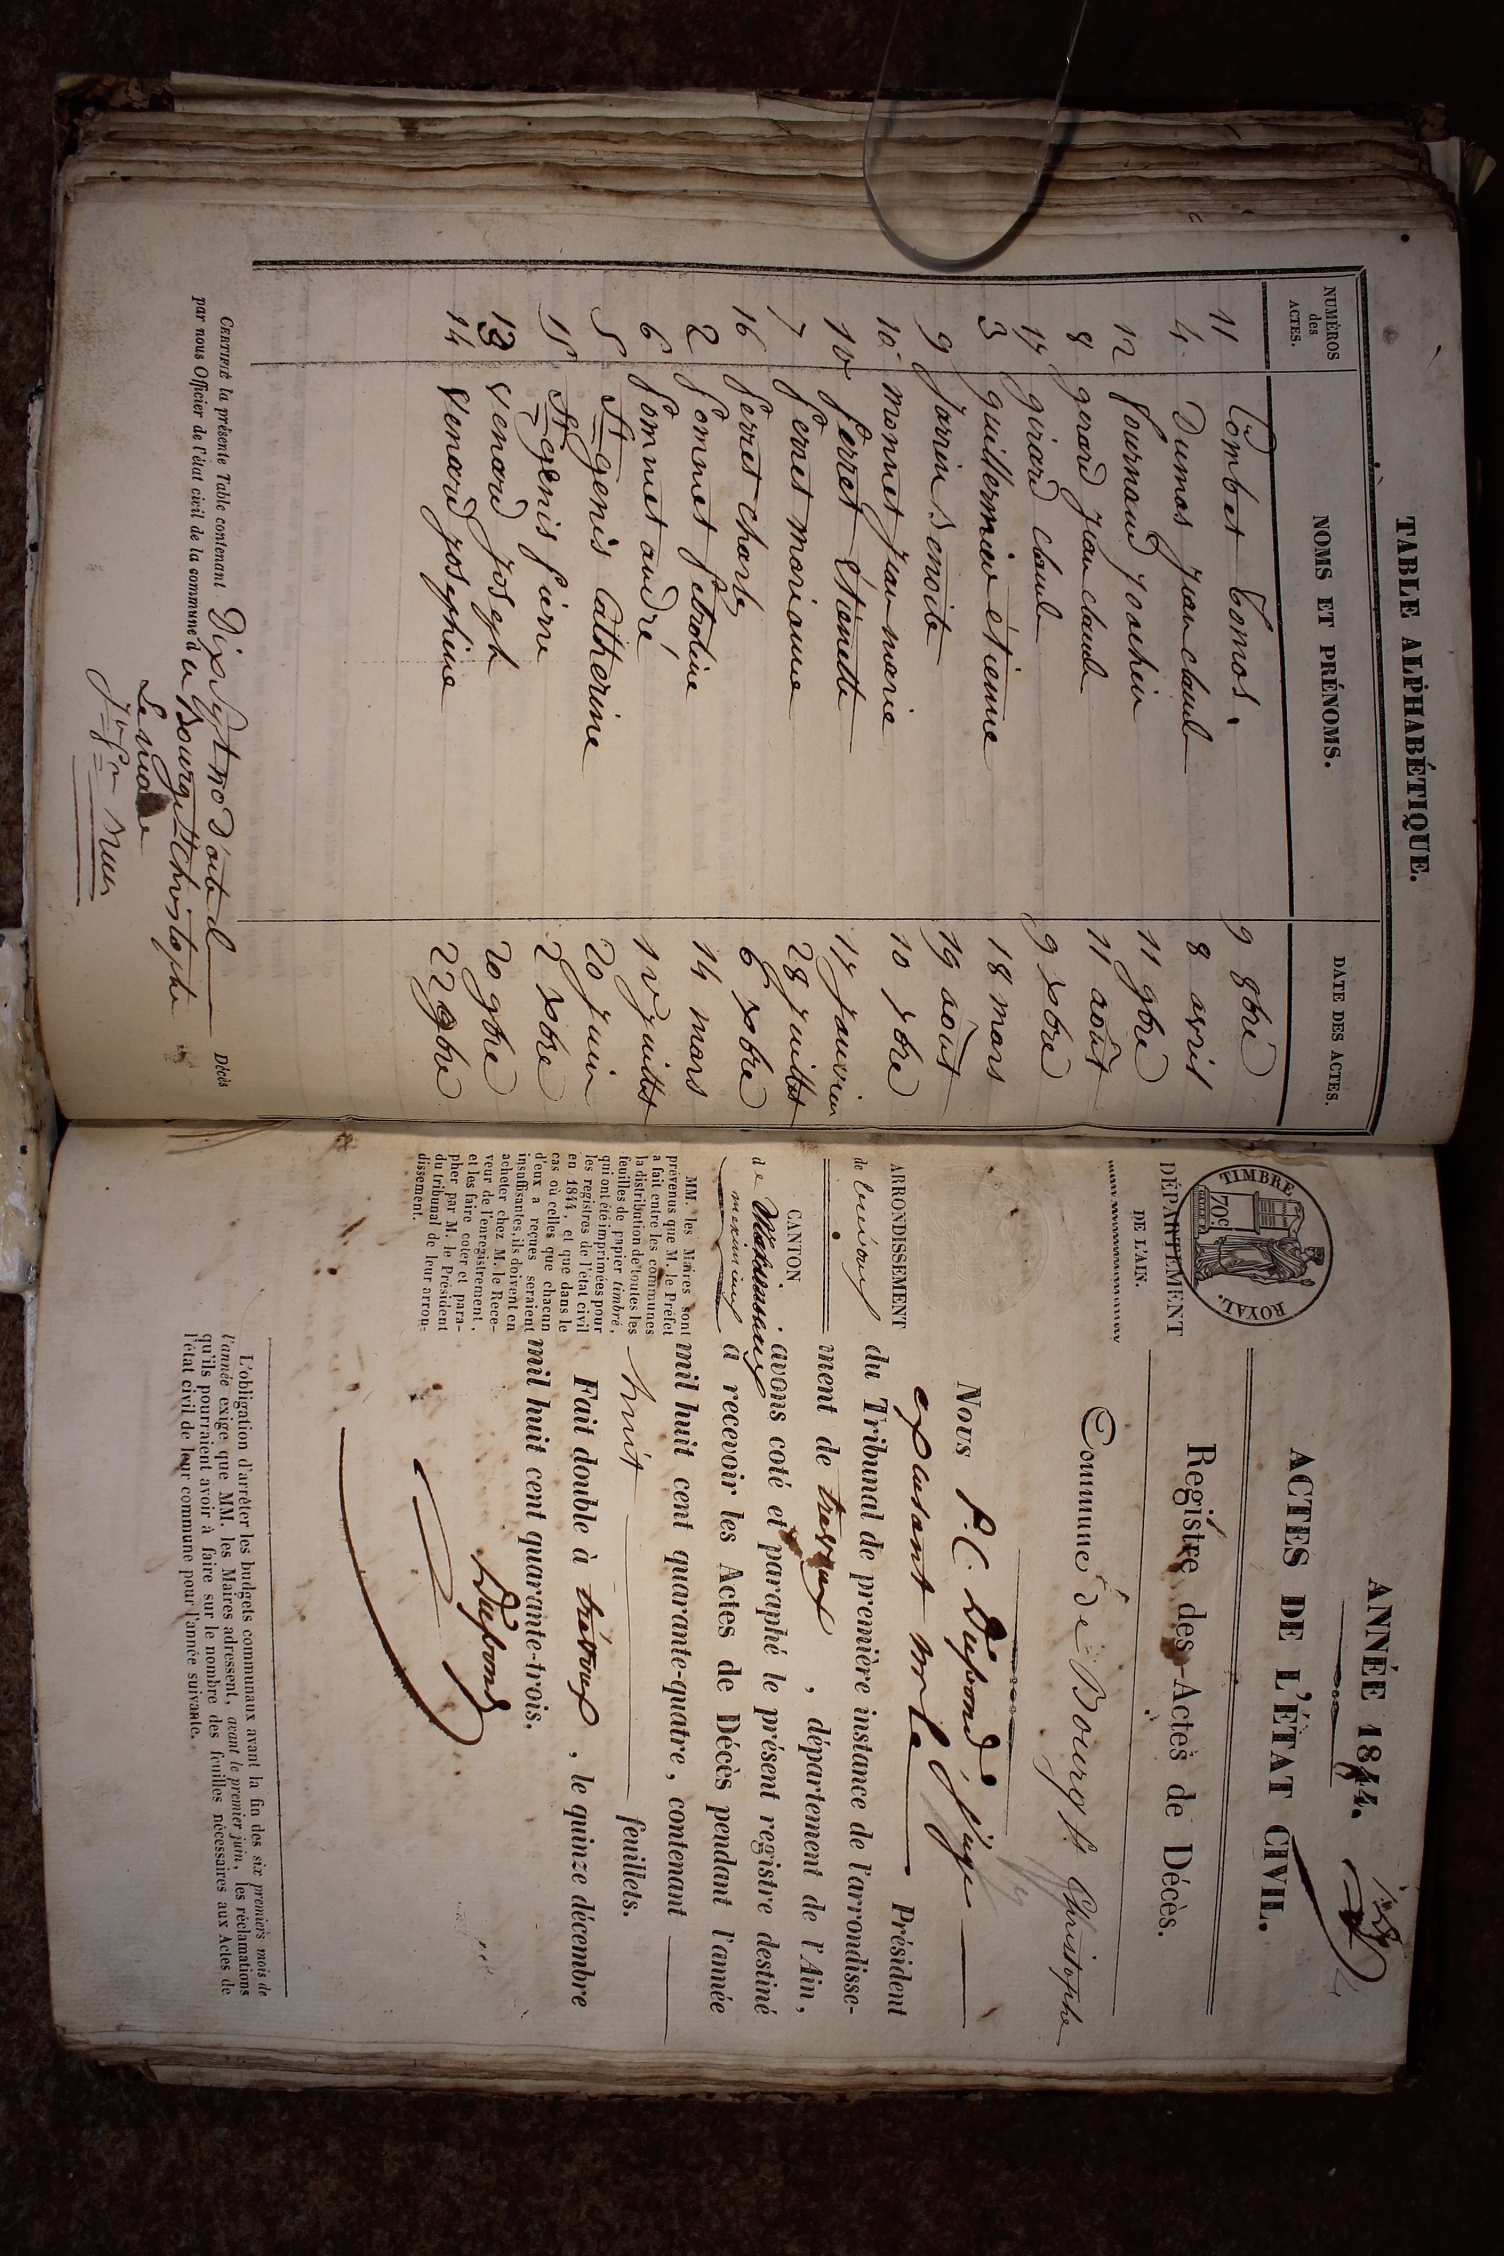 TABLE ALPHABÉTIQUE.
NUMÉROS des ACTES. NOMS ET PRÉNOMS. DATE DES ACTES.
11 Combet Comas. 9 8bre
4. Dumas jean claude 8 avril
12 fournand joachin 11 9bre
8 gerard jean claude 11 août
17 girard claude 9 xbre
3 guillermin étienne 18 mars
9 jarrin benoite 19 août
10 monnet jean marie 10 7bre
1er ferret étienette 17 janvier
7 ferret marianne 28 juillet
16 ferret charle 6 xbre
2 pommet petroline 14 mars
6 pommet andré 1er juillet
5 St genis Catherine 20 juin
15 St genis pierre 2 xbre
13 venard joseph 20 9bre
14 venard josephine 22 9bre
CERTIFIÉ la présente Table contenant Dix Sept no d'acte d Décès
par nous Officier de l'état civil de la commune d u Bourg St Christophe
Le maire
ANNÉE 1844.
ACTES DE L'ÉTAT CIVIL.
TIMBRE ROYAL.
70c
DÉPARTEMENT
DE L'AIN.
Registre des Actes de Décès.
Commune de Bourg St Christophe
ARRONDISSEMENT
de trévoux
CANTON
de
meximieux
MM. les Maires sont
prévenus que M. le Préfet
a fait entre les communes
la distribution de toutes les
feuilles de papier timbré,
qui ont été imprimées pour
les registres de l'état civil
en 1844, et que dans le
cas où celles que chacun
d'eux a reçues seraient
insuffisantes, ils doivent en
acheter chez M. le Rece-
veur de l'enregistrement,
et les faire coter et para-
pher par M. le Président
du tribunal de leur arron-
dissement.
NOUS P. C. Dupond, juge
exausant mr le Président
du Tribunal de première instance de l'arrondisse-
ment de trevoux, département de l'Ain,
avons coté et paraphé le présent registre destiné
à recevoir les Actes de Décès pendant l'année
mil huit cent quarante-quatre, contenant
huit feuillets.
Fait double à trévoux, le quinze décembre
mil huit cent quarante-trois.
Dupond
L'obligation d'arrêter les budgets communaux avant la fin des six premiers mois de
l'année exige que MM. les Maires adressent, avant le premier juin, les réclamations
qu'ils pourraient avoir à faire sur le nombre des feuilles nécessaires aux Actes de
l'état civil de leur commune pour l'année suivante.